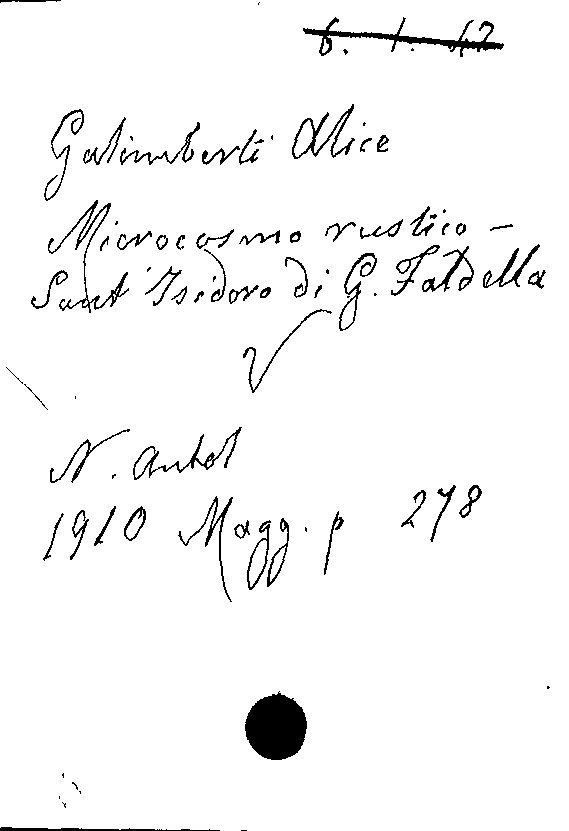 6. 1. 42
Galimberti Alice
Microcosmo rustico -
Sant' Isidoro di G. Faldella
N. Antol
1910 Magg. p 278